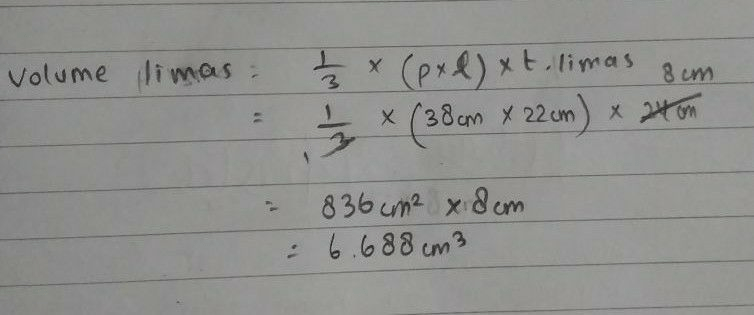 Volume limas = 1/3 × (p×l) × t.limas
= 1/3 × (38cm × 22cm) × 24 cm 8cm
1
= 836 cm² × 8cm
= 6.688 cm³